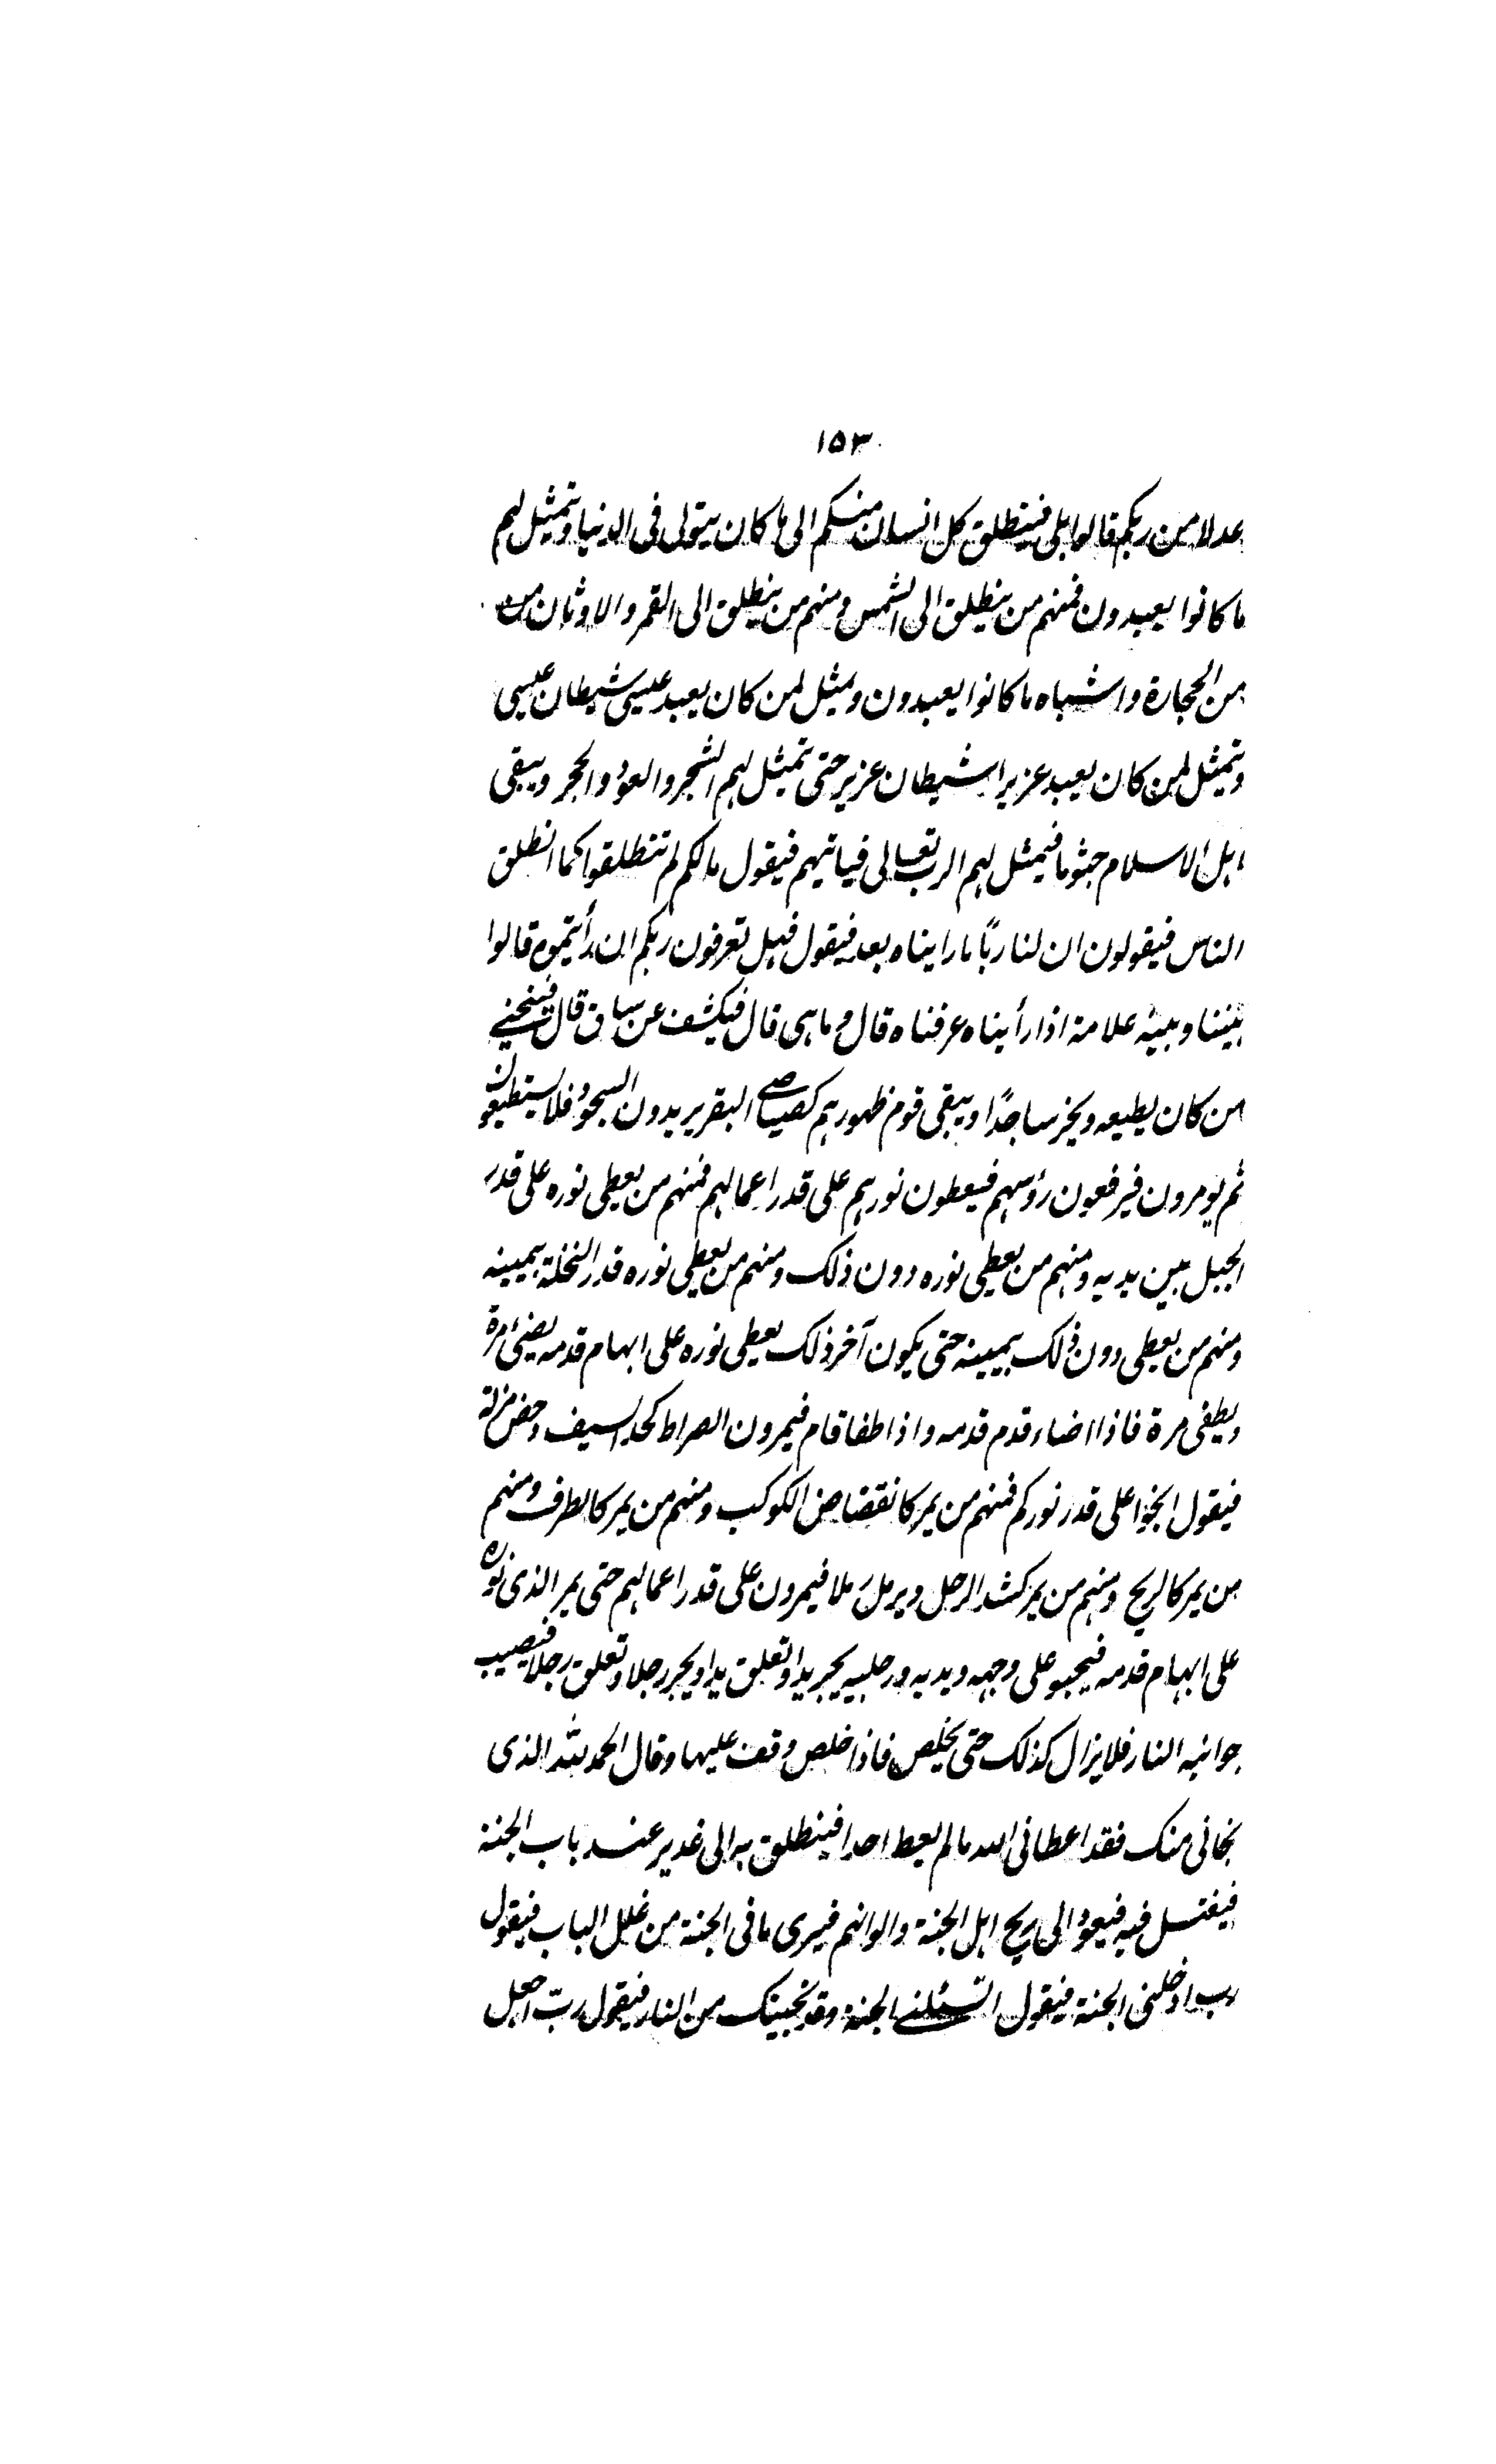 ۱۵۳
عدلا من ربكم قالوا بلى فينطلق كل انسان منكم الى ما كان يتولى فى الدنيا وتمثيل لهم
ما كانوا يعبدون فمنهم من ينطلق الى الشمس ومنهم من ينطلق الى القمر والاوثان من
من الحجارة واشباه ما كانوا يعبدون ويمثل لمن كان يعبد عيسى شيطان عيسى
ويمثل لمن كان يعبد عزيرا شيطان عزير حتى تمثيل لهم الشجر والعود والحجر ويبقى
اهل الاسلام جثوما فيمثل لهم الرب تعالى فياتيهم فيقول مالكم لم تنطلقوا كما انطلق
الناس فيقولون ان لنا ربًا ما رايناه بعد فيقول فبهل تعرفون ربكم ان رأيتموه قالوا
بيننا وبينه علامة اذا رأيناه عرفناه قال وما هى قال فيكشف عن ساق قال فينحنى
من كان يطيعه ويخر ساجدًا ويبقى قوم ظهورهم كصياصى البقر يريدون السجود فلا يستطيعون
ثم يومرون فيرفعون رؤسهم فيعطون نورهم على قدر اعمالهم فمنهم من يعطى نوره على قدر
الجبل بين يديه ومنهم من يعطى نوره دون ذلك ومنهم من يعطى نوره قدر النخلة بيمينه
ومنهم من يعطى دون ذلك بيمينه حتى يكون آخر ذلك يعطى نوره على ابهام قدمه يضئ مرة
ويطفى مرة فاذا اضاء قدم قدمه واذا طفا قام فيمرون الصراط كحد السيف دحض مزلة
فيقول انجوا على قدر نوركم فمنهم من يمر كانقضاض الكوكب ومنهم من يمر كالطرف ومنهم
من يمر كالريح ومنهم من يمر كشد الرحل ويرمل رملا فيمرون على قدر اعمالهم حتى يمر الذى نوره
على ابهام قدمه فيحبو على وجهه ويديه ورجليه يجر يدا وتعلق يدا ويجر رجلا وتعلق رجلا فيصيب
جوانبه النار فلا يزال كذلك حتى يخلص فاذا خلص وقف عليها وقال الحمد لله الذى
نجانى منك فقد اعطانى الله مالم يعط احدا فينطلق به الى غدير عند باب الجنة
فيغتسل فيه فيعود الى ريح اهل الجنة والوانهم فيرى ما فى الجنة من خلل الباب فيقول
رب ادخلنى الجنة فيقول اتسئلنى الجنة وقد نجيتك من النار فيقول ربّ اجعل